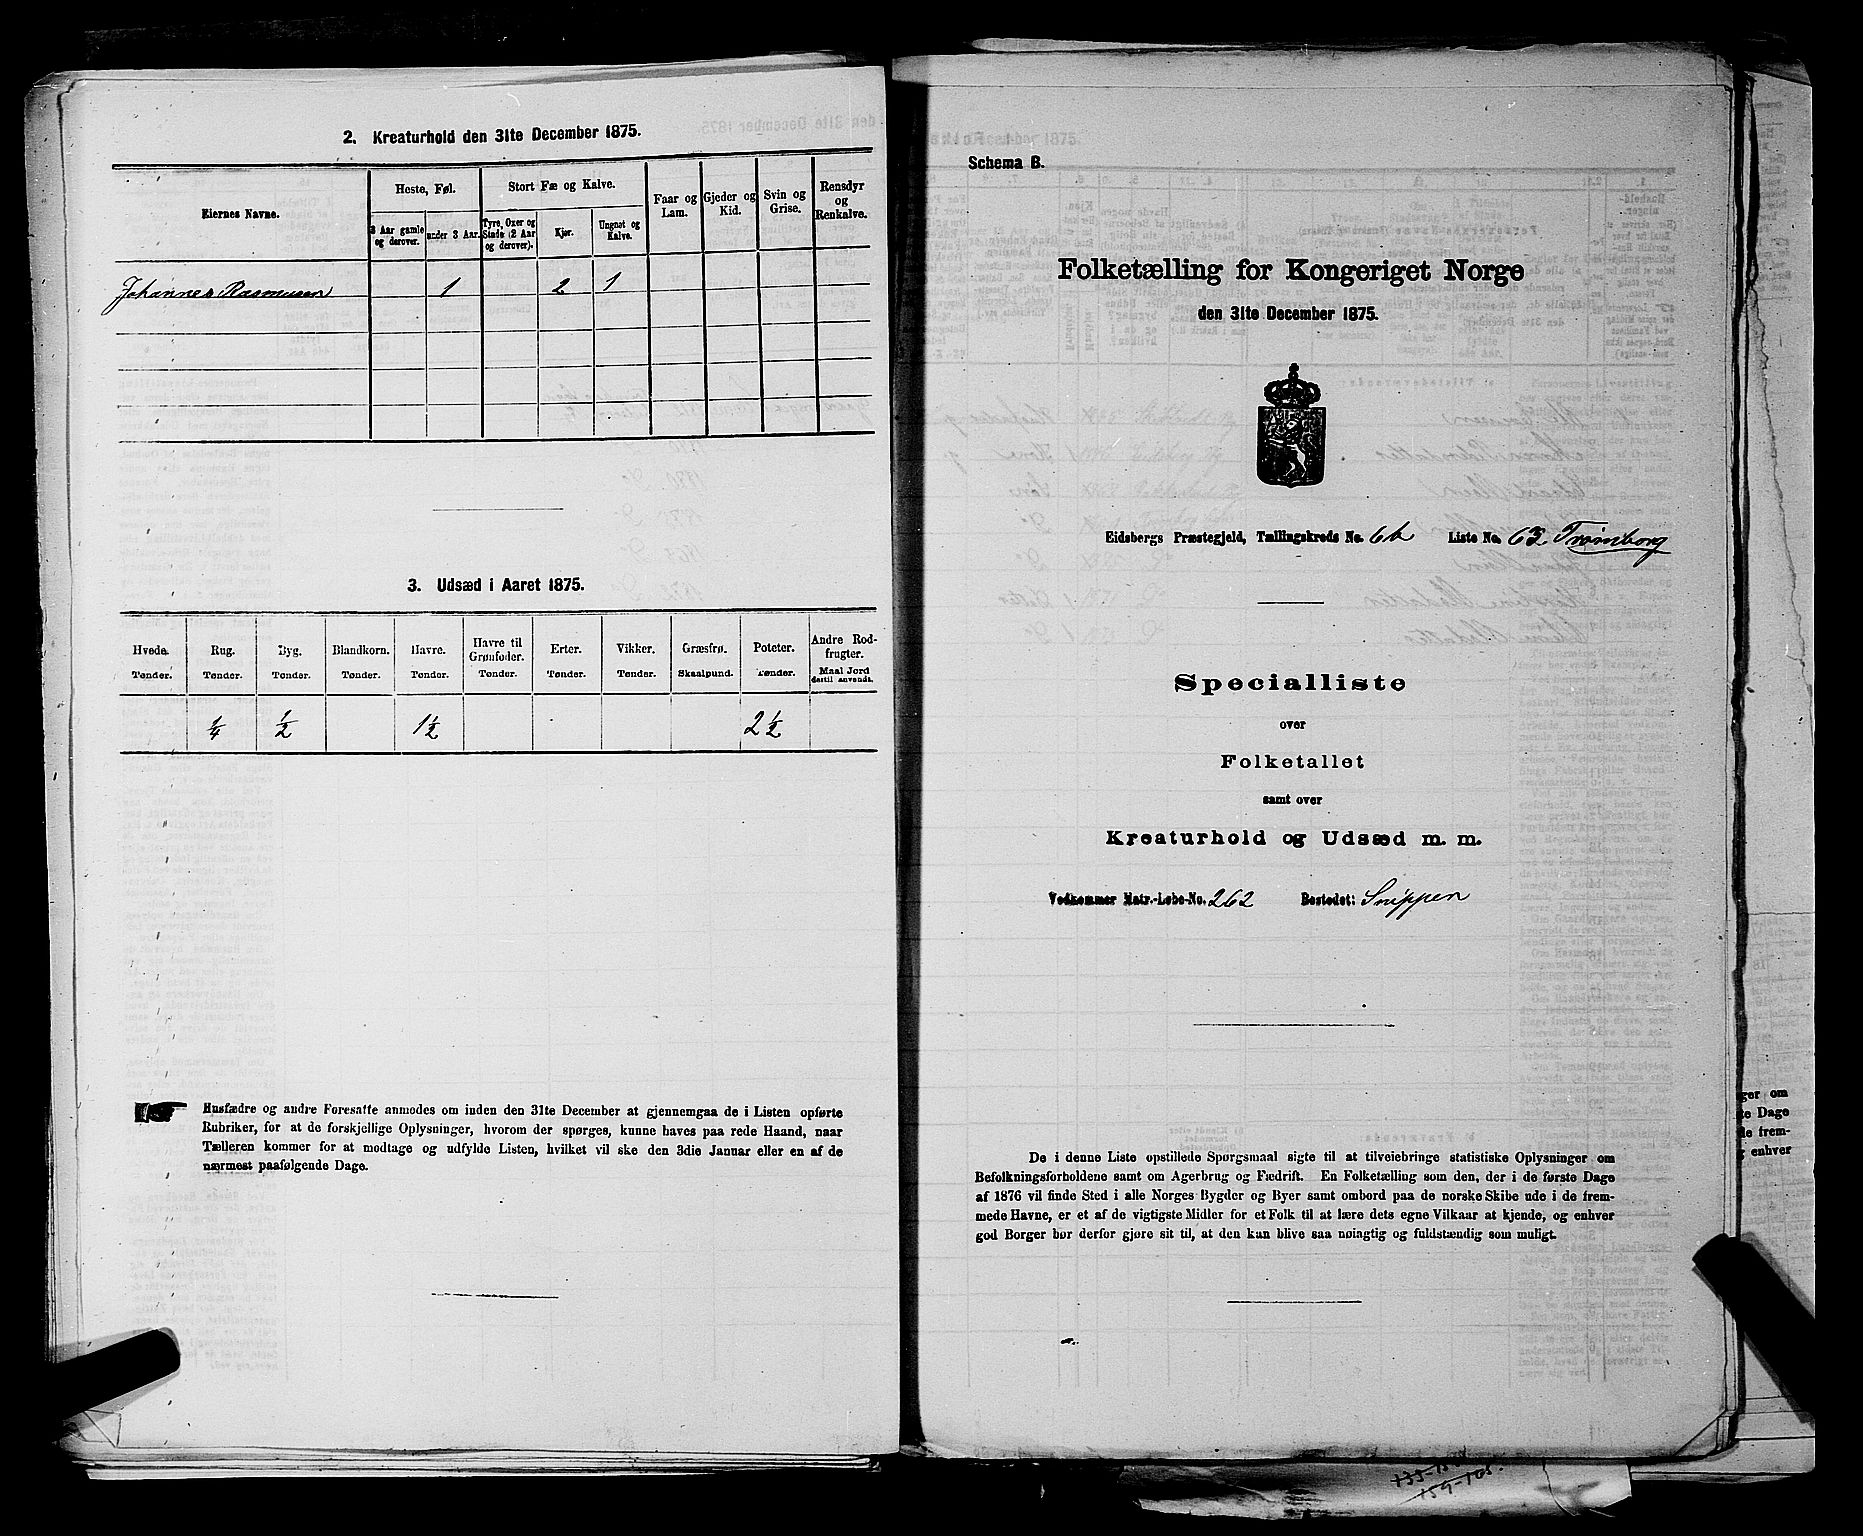 2. Kreaturhold den 31te December 1875.
Eiernes Navne.
Heste, Føl.
Stort Fæ og Kalve.
Faar og Lam.
Gjeder og Kid.
Svin og Grise.
Rensdyr og Renkalve.
3 Aar gamle og derover.
under 3 Aar.
Tyre, Oxer og Stude (2 Aar og derover).
Kjør.
Ungnøt og Kalve.
Johannes Rasmusen 1 2 1
3. Udsæd i Aaret 1875.
Hvede. Rug. Byg. Blandkorn. Havre. Havre til Grønfoder. Erter. Vikker. Græsfrø. Poteter. Andre Rodfrugter.
Tønder. Tønder. Tønder. Tønder. Tønder. Tønder. Tønder. Tønder. Skaalpund. Tønder. Maal Jord dertil anvendt.
1/4 1/2 1 1/2 2 1/2
Husfædre og andre Foresatte anmodes om inden den 31te December at gjennemgaa de i Listen opførte
Rubriker, for at de forskjellige Oplysninger, hvorom der spørges, kunne haves paa rede Haand, naar
Tælleren kommer for at modtage og udfylde Listen, hvilket vil ske den 3die Januar eller en af de
nærmest paafølgende Dage.
Schema B.
Folketælling for Kongeriget Norge
den 31te December 1875.
Eidsbergs Præstegjeld, Tællingskreds No. 6b Liste No. 63 Trømborg
Specialliste
over
Folketallet
samt over
Kreaturhold og Udsæd m. m.
Vedkommer Matr.-Løbe-No. 262 Bostedet: Snippen
De i denne Liste opstillede Spørgsmaal sigte til at tilveiebringe statistiske Oplysninger om
Befolkningsforholdene samt om Agerbrug og Fædrift. En Folketælling som den, der i de første Dage
af 1876 vil finde Sted i alle Norges Bygder og Byer samt ombord paa de norske Skibe ude i de frem-
mede Havne, er et af de vigtigste Midler for et Folk til at lære dets egne Vilkaar at kjende, og enhver
god Borger bør derfor gjøre sit til, at den kan blive saa nøiagtig og fuldstændig som muligt.
ger om
te Dage
de frem-
g enhver